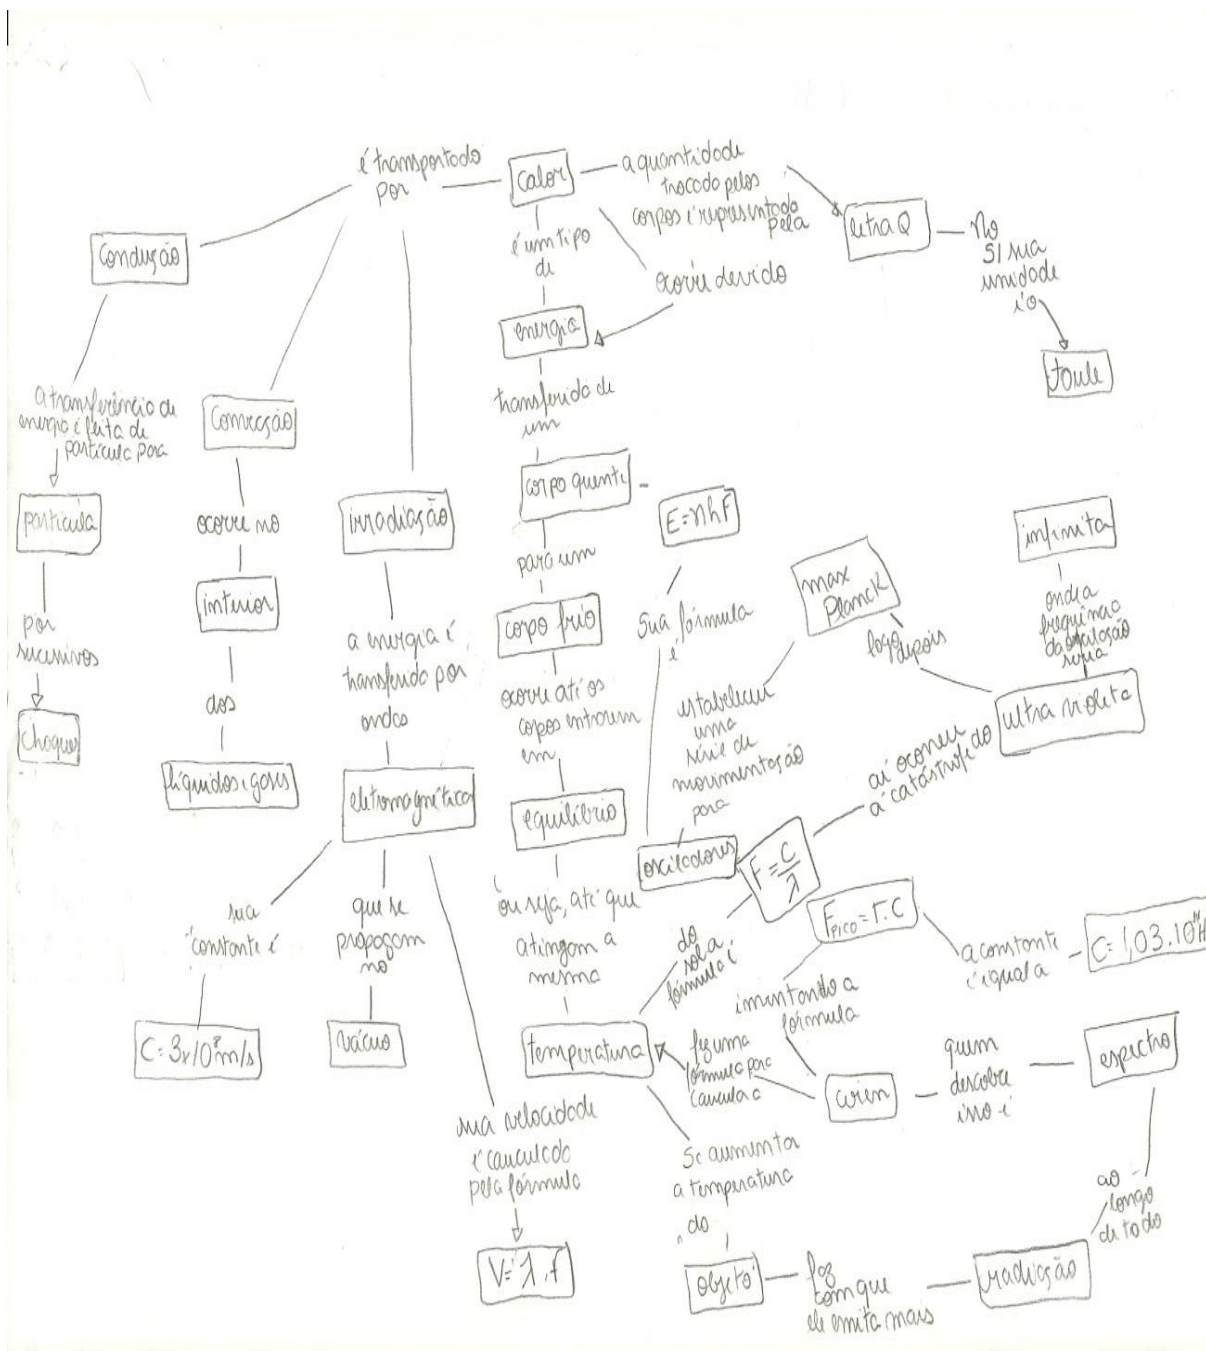 é transportado
por
calor
a quantidade
trocada pelos
corpos é representado
pela
letra Q
No
SI sua
unidade
é o
Joule
Condução
é um tipo
de
ocorre devido
energia
a transferência de
energia é feita de
partícula para
partícula
por
sucessivos
choques
Convecção
ocorre no
interior
dos
líquidos e gases
irradiação
a energia é
transferida por
ondas
eletromagnética
sua
constante é
C = 3x10⁸ m/s
que se
propagam
no
vácuo
sua velocidade
é cauculado
pela fórmula
V = λ . f
transferido de
um
corpo quente
para um
corpo frio
ocorre até os
copos entrarem
em
equilíbrio
ou seja, até que
atingam a
mesma
temperatura
E = nhF
Sua fórmula
é
max
Planck
estabeleceu
uma
série de
movimentação
para
osciladores
logo
depois
infinita
onde a
frequência
seria
ultra violeta
aí ocorreu
a catástrofe do
F = C/λ
do
sol a
fórmula é
Fpico = T. C
a constante
é igual a
inventando a
fórmula
fez uma
fórmula para
wien
quem
descobre
isso é
espectro
ao
longo
de todo
radiação
Se aumentar
a temperatura
do
objeto
faz
com que
ele emita mais